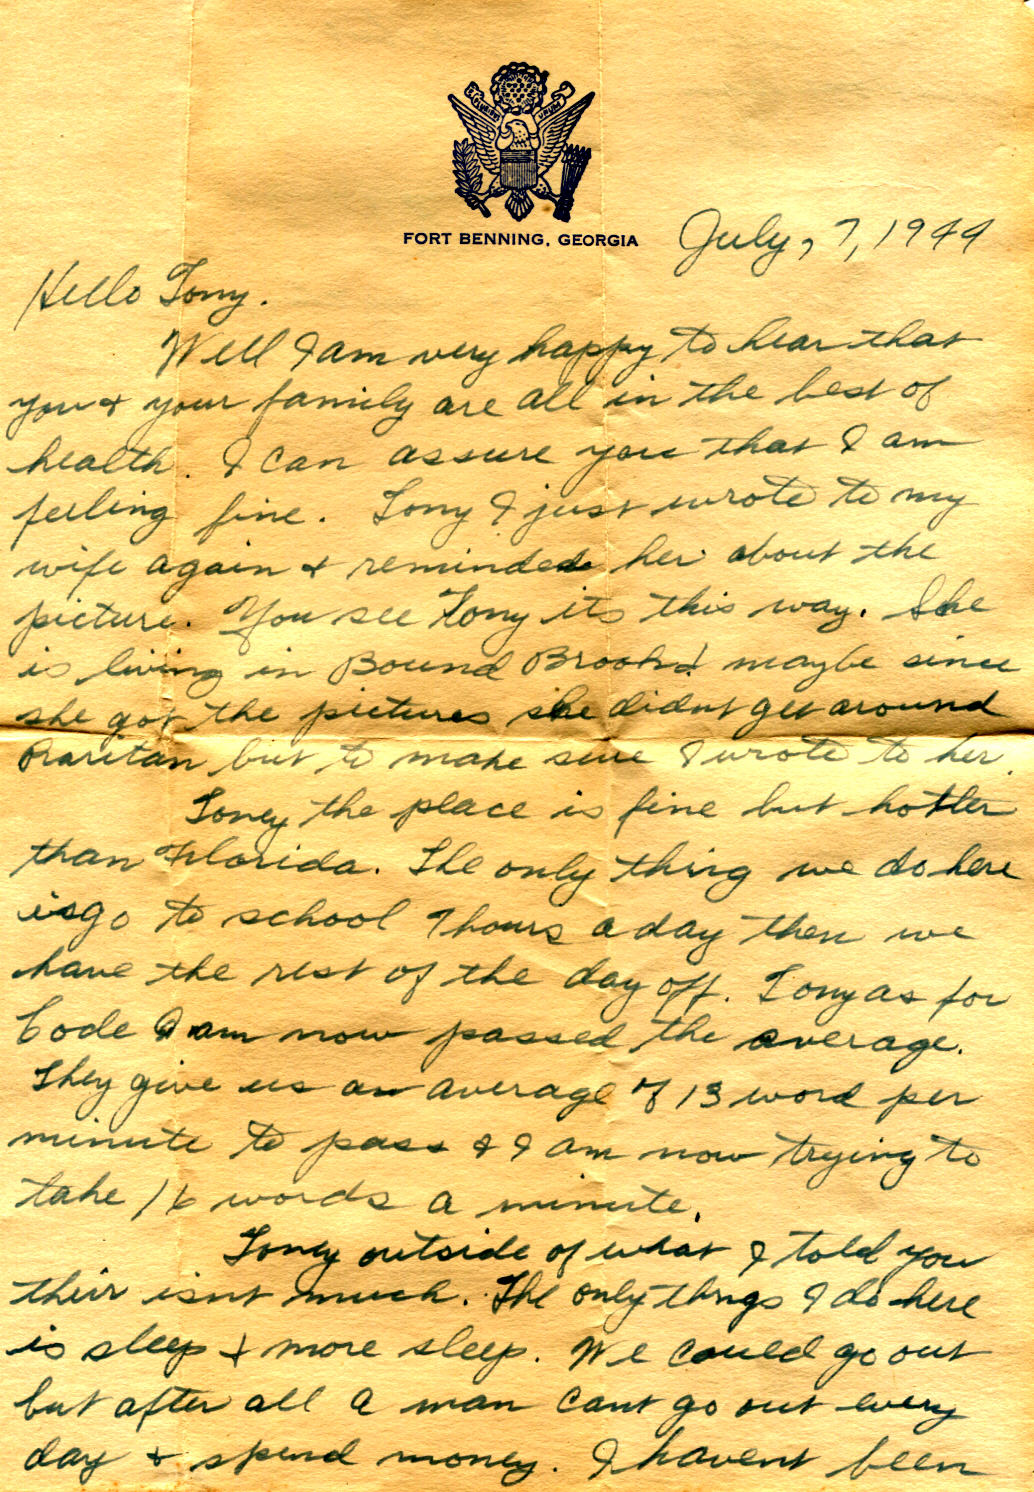 E PLURIBUS UNUM
FORT BENNING, GEORGIA
July, 7, 1944
Hello Tony.
Well I am very happy to hear that
you & your family are all in the best of
health. I can assure you that I am
feeling fine. Tony I just wrote to my
wife again & reminded her about the
picture. You see Tony its this way. She
is living in Bound Brook & maybe since
she got the pictures she didnt get around
Raritan but to make sure I wrote to her.
Toney the place is fine but hotter
than Florida. The only thing we do here
is go to school 7 hours a day then we
have the rest of the day off. Tony as for
Code I am now passed the average.
They give us an average of 13 word per
minute to pass & I am now trying to
take 16 words a minute.
Toney outside of what I told you
their isnt much. The only things I do here
is sleep & more sleep. We could go out
but after all a man cant go out every
day & spend money. I havent been